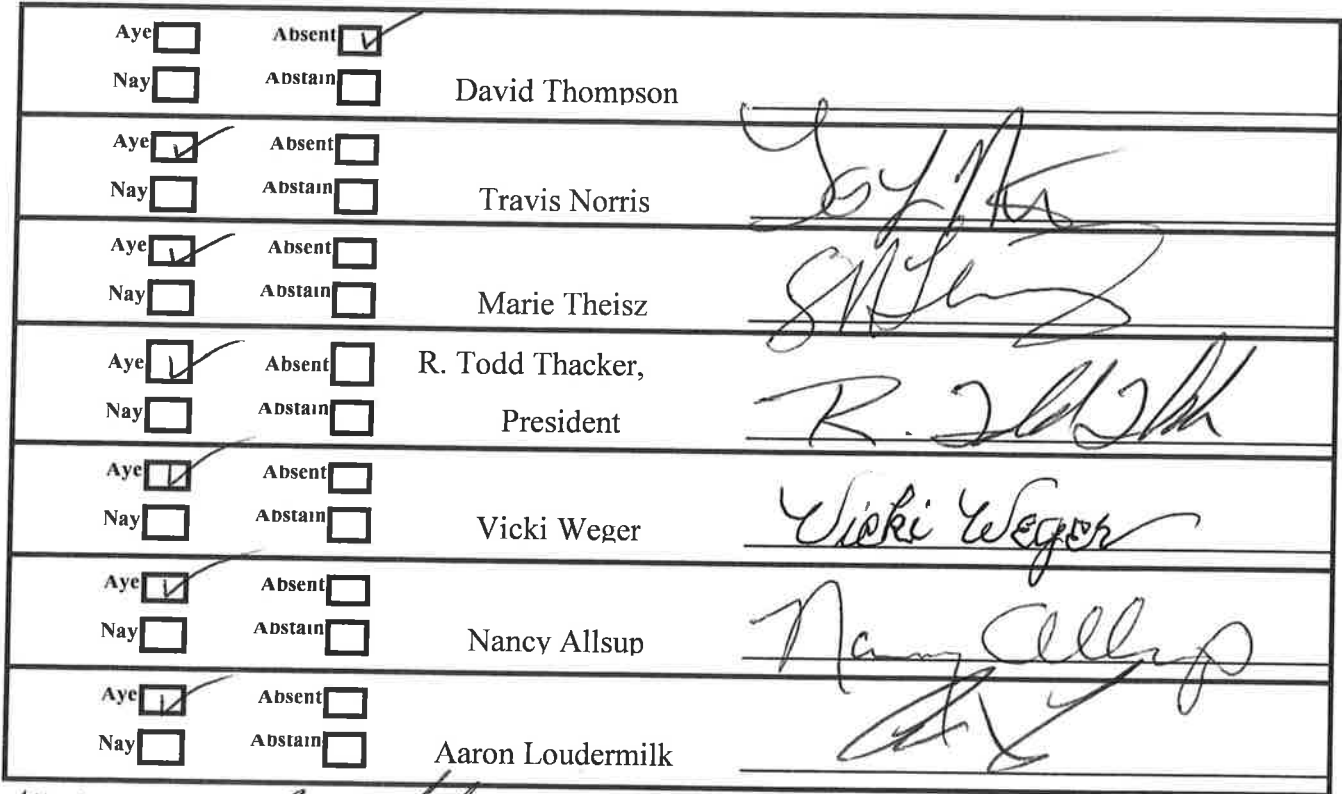 Aye Absent
Nay Abstain David Thompson
Aye Absent
Nay Abstain Travis Norris
Aye Absent
Nay Abstain Marie Theisz
Aye Absent R. Todd Thacker,
Nay Abstain President R. Todd Thacker
Aye Absent
Nay Abstain Vicki Weger Vicki Weger
Aye Absent
Nay Abstain Nancy Allsup Nancy Allsup
Aye Absent
Nay Abstain Aaron Loudermilk